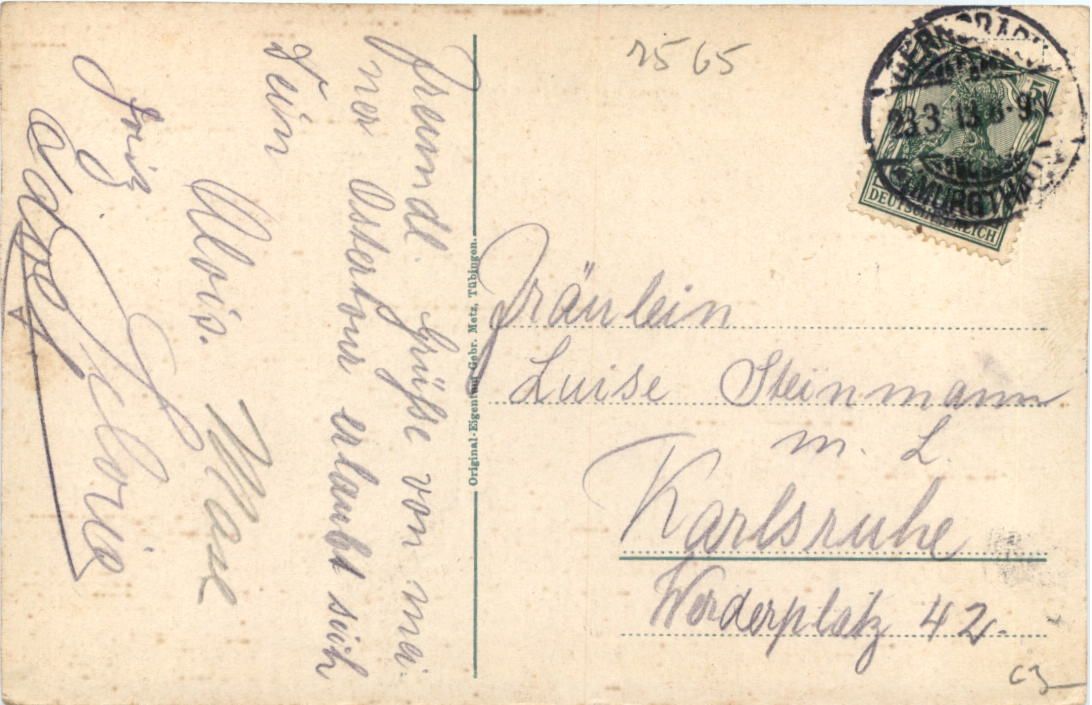 2565
GERNSBACH
23.3.13.8-9
(MURGTHAL)
5
DEUTSCHES REICH
Freundl. Grüße von mei-
ner Ostertour erlaubt sich
Dein
Alois.
Max
Fritz
Adolf
Original-Eigentum Gebr. Metz, Tübingen.
Fräulein
Luise Steinmann
m. L.
Karlsruhe
Werderplatz 42.